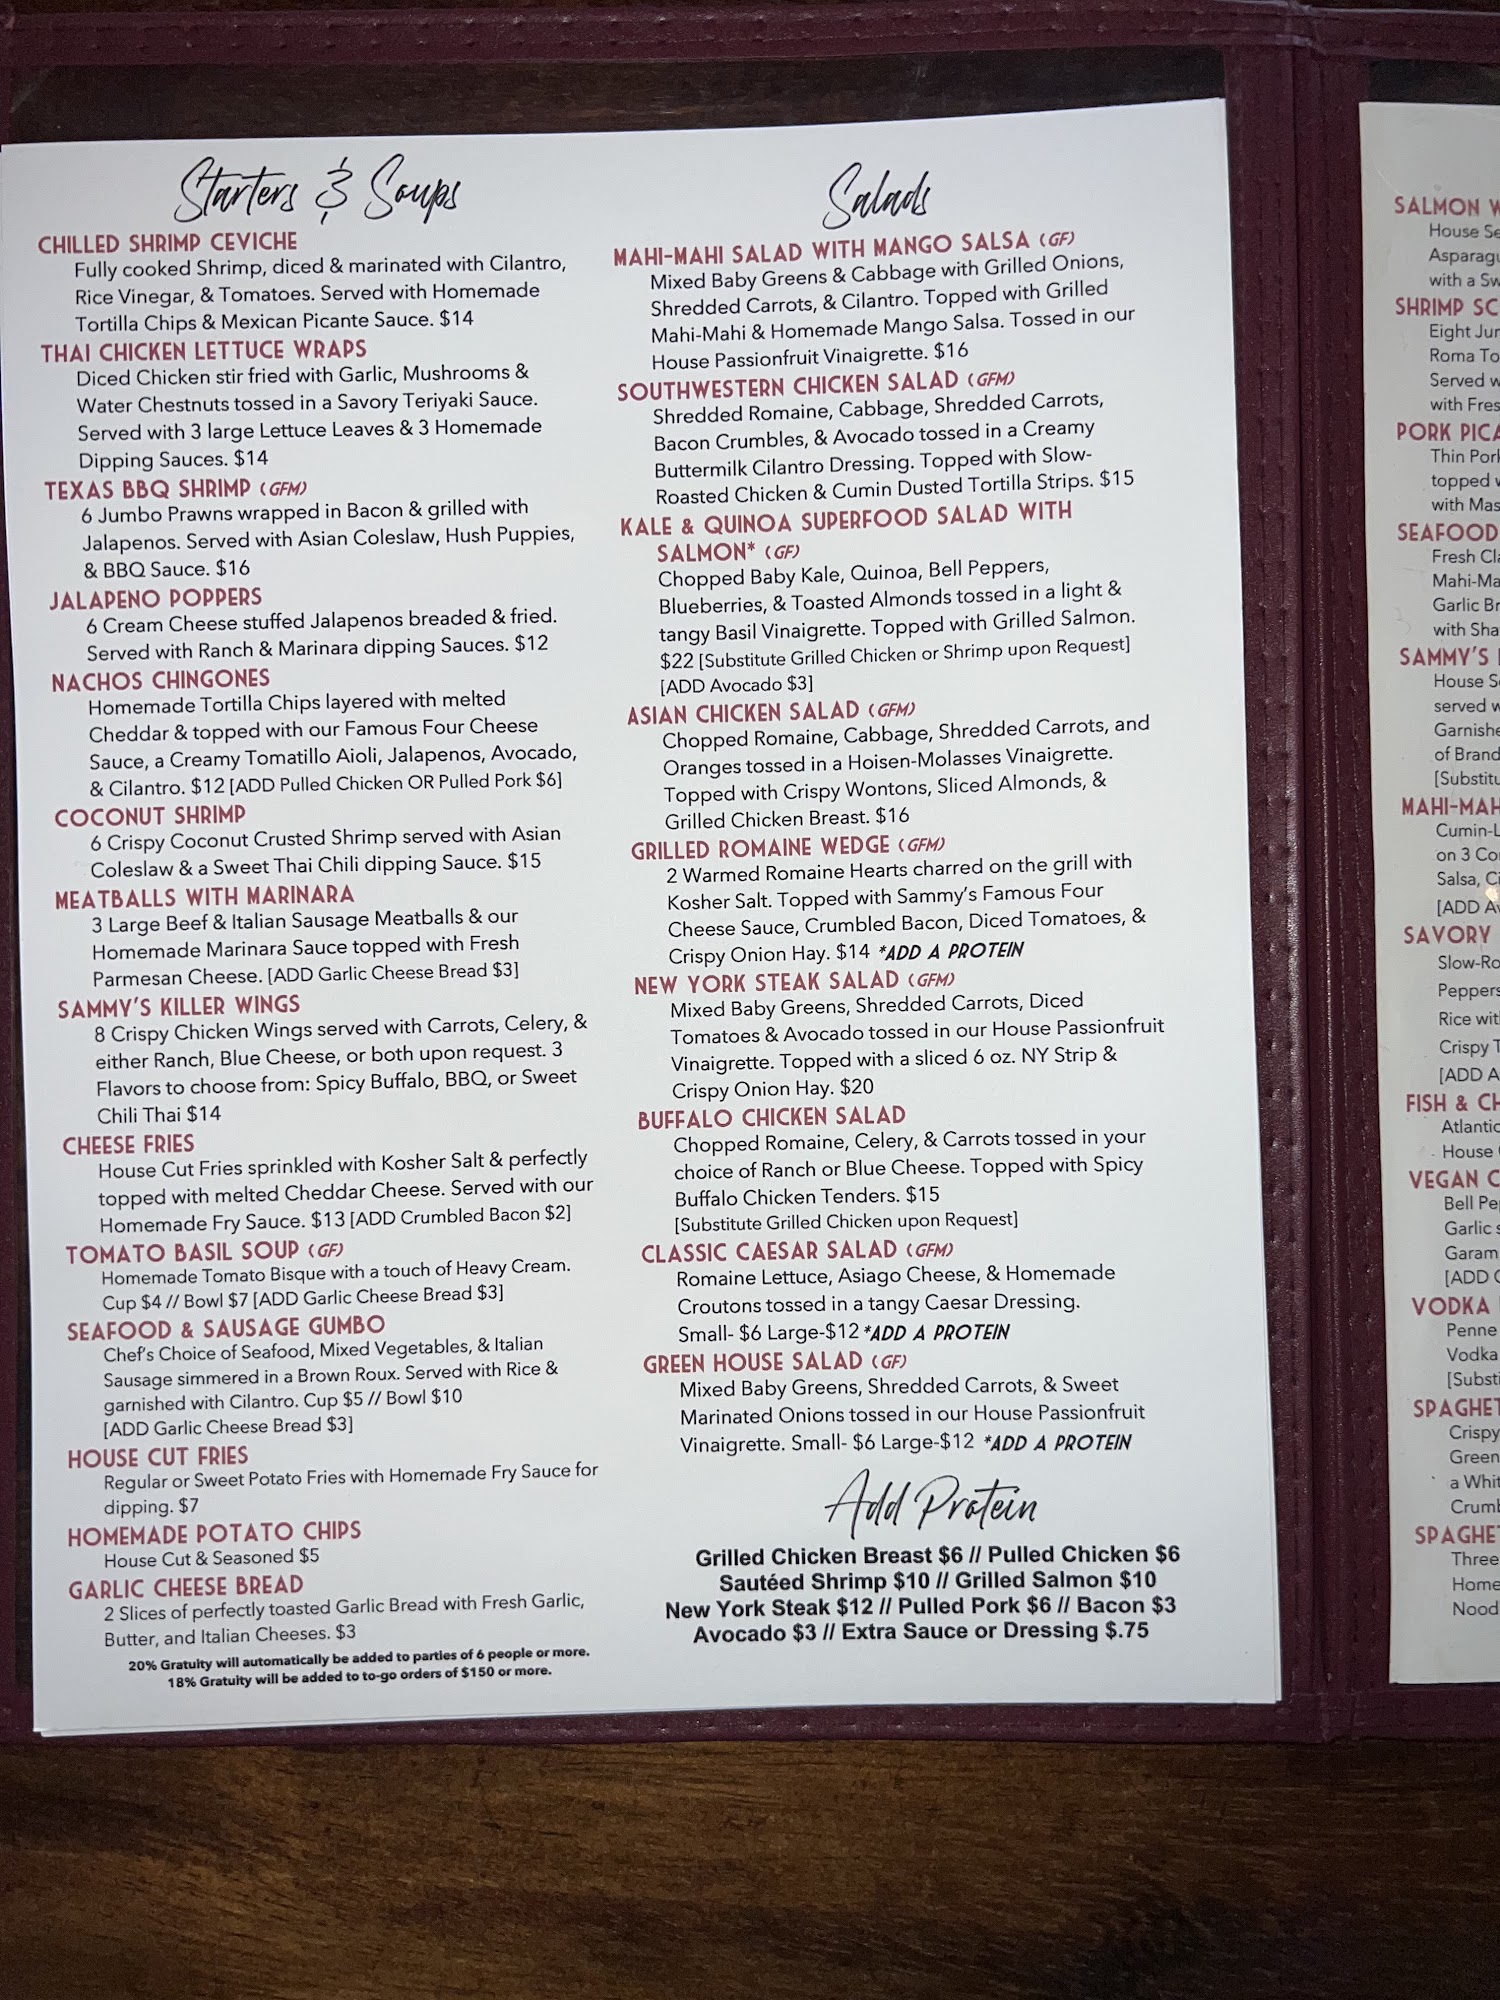 Starters & Soups
CHILLED SHRIMP CEVICHE
Fully cooked Shrimp, diced & marinated with Cilantro,
Rice Vinegar, & Tomatoes. Served with Homemade
Tortilla Chips & Mexican Picante Sauce. $14
THAI CHICKEN LETTUCE WRAPS
Diced Chicken stir fried with Garlic, Mushrooms &
Water Chestnuts tossed in a Savory Teriyaki Sauce.
Served with 3 large Lettuce Leaves & 3 Homemade
Dipping Sauces. $14
TEXAS BBQ SHRIMP (GFM)
6 Jumbo Prawns wrapped in Bacon & grilled with
Jalapenos. Served with Asian Coleslaw, Hush Puppies,
& BBQ Sauce. $16
JALAPENO POPPERS
6 Cream Cheese stuffed Jalapenos breaded & fried.
Served with Ranch & Marinara dipping Sauces. $12
NACHOS CHINGONES
Homemade Tortilla Chips layered with melted
Cheddar & topped with our Famous Four Cheese
Sauce, a Creamy Tomatillo Aioli, Jalapenos, Avocado,
& Cilantro. $12 [ADD Pulled Chicken OR Pulled Pork $6]
COCONUT SHRIMP
6 Crispy Coconut Crusted Shrimp served with Asian
Coleslaw & a Sweet Thai Chili dipping Sauce. $15
MEATBALLS WITH MARINARA
3 Large Beef & Italian Sausage Meatballs & our
Homemade Marinara Sauce topped with Fresh
Parmesan Cheese. [ADD Garlic Cheese Bread $3]
SAMMY'S KILLER WINGS
8 Crispy Chicken Wings served with Carrots, Celery, &
either Ranch, Blue Cheese, or both upon request. 3
Flavors to choose from: Spicy Buffalo, BBQ, or Sweet
Chili Thai $14
CHEESE FRIES
House Cut Fries sprinkled with Kosher Salt & perfectly
topped with melted Cheddar Cheese. Served with our
Homemade Fry Sauce. $13 [ADD Crumbled Bacon $2]
TOMATO BASIL SOUP (GF)
Homemade Tomato Bisque with a touch of Heavy Cream.
Cup $4 // Bowl $7 [ADD Garlic Cheese Bread $3]
SEAFOOD & SAUSAGE GUMBO
Chef's Choice of Seafood, Mixed Vegetables, & Italian
Sausage simmered in a Brown Roux. Served with Rice &
garnished with Cilantro. Cup $5 // Bowl $10
[ADD Garlic Cheese Bread $3]
HOUSE CUT FRIES
Regular or Sweet Potato Fries with Homemade Fry Sauce for
dipping. $7
HOMEMADE POTATO CHIPS
House Cut & Seasoned $5
GARLIC CHEESE BREAD
2 Slices of perfectly toasted Garlic Bread with Fresh Garlic,
Butter, and Italian Cheeses. $3
20% Gratuity will automatically be added to parties of 6 people or more.
18% Gratuity will be added to to-go orders of $150 or more.
Salads
MAHI-MAHI SALAD WITH MANGO SALSA (GF)
Mixed Baby Greens & Cabbage with Grilled Onions,
Shredded Carrots, & Cilantro. Topped with Grilled
Mahi-Mahi & Homemade Mango Salsa. Tossed in our
House Passionfruit Vinaigrette. $16
SOUTHWESTERN CHICKEN SALAD (GFM)
Shredded Romaine, Cabbage, Shredded Carrots,
Bacon Crumbles, & Avocado tossed in a Creamy
Buttermilk Cilantro Dressing. Topped with Slow-
Roasted Chicken & Cumin Dusted Tortilla Strips. $15
KALE & QUINOA SUPERFOOD SALAD WITH
SALMON* (GF)
Chopped Baby Kale, Quinoa, Bell Peppers,
Blueberries, & Toasted Almonds tossed in a light &
tangy Basil Vinaigrette. Topped with Grilled Salmon.
$22 [Substitute Grilled Chicken or Shrimp upon Request]
[ADD Avocado $3]
ASIAN CHICKEN SALAD (GFM)
Chopped Romaine, Cabbage, Shredded Carrots, and
Oranges tossed in a Hoisen-Molasses Vinaigrette.
Topped with Crispy Wontons, Sliced Almonds, &
Grilled Chicken Breast. $16
GRILLED ROMAINE WEDGE (GFM)
2 Warmed Romaine Hearts charred on the grill with
Kosher Salt. Topped with Sammy's Famous Four
Cheese Sauce, Crumbled Bacon, Diced Tomatoes, &
Crispy Onion Hay. $14 *ADD A PROTEIN
NEW YORK STEAK SALAD (GFM)
Mixed Baby Greens, Shredded Carrots, Diced
Tomatoes & Avocado tossed in our House Passionfruit
Vinaigrette. Topped with a sliced 6 oz. NY Strip &
Crispy Onion Hay. $20
BUFFALO CHICKEN SALAD
Chopped Romaine, Celery, & Carrots tossed in your
choice of Ranch or Blue Cheese. Topped with Spicy
Buffalo Chicken Tenders. $15
[Substitute Grilled Chicken upon Request]
CLASSIC CAESAR SALAD (GFM)
Romaine Lettuce, Asiago Cheese, & Homemade
Croutons tossed in a tangy Caesar Dressing.
Small- $6 Large-$12 *ADD A PROTEIN
GREEN HOUSE SALAD (GF)
Mixed Baby Greens, Shredded Carrots, & Sweet
Marinated Onions tossed in our House Passionfruit
Vinaigrette. Small- $6 Large-$12 *ADD A PROTEIN
Add Protein
Grilled Chicken Breast $6 // Pulled Chicken $6
Sautéed Shrimp $10 // Grilled Salmon $10
New York Steak $12 // Pulled Pork $6 // Bacon $3
Avocado $3 // Extra Sauce or Dressing $.75
SALMON
House
with a
SHRIMP
Eight
Roma
Served
with
PORK
Thin
topped
with
SEAFOOD
Fresh
Garlic
with
SAMMY'S
House
served
of
MAHI-MAH
on 3
Salsa,
[ADD
SAVORY
Rice
Crispy
[ADD
FISH &
House
VEGAN
Bell
Garlic
Garam
[ADD
VODKA
Penne
Vodka
Crispy
Green
a
Three